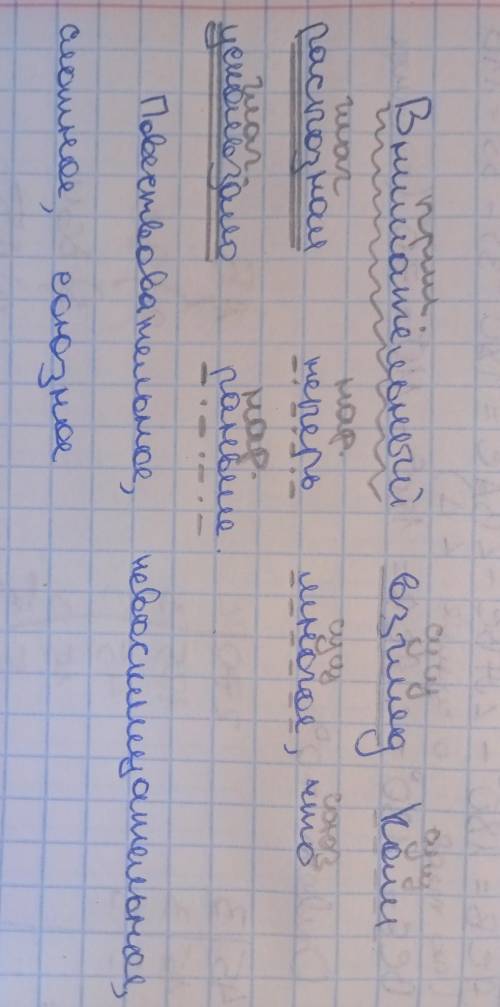 прил. сущ сущ
Внимательный взгляд Коли
глаг нар. сущ союз
распознал теперь многое, что
глаг. нар.
ускользало раньше.
Повествовательное, невосклицательное,
сложное, союзное